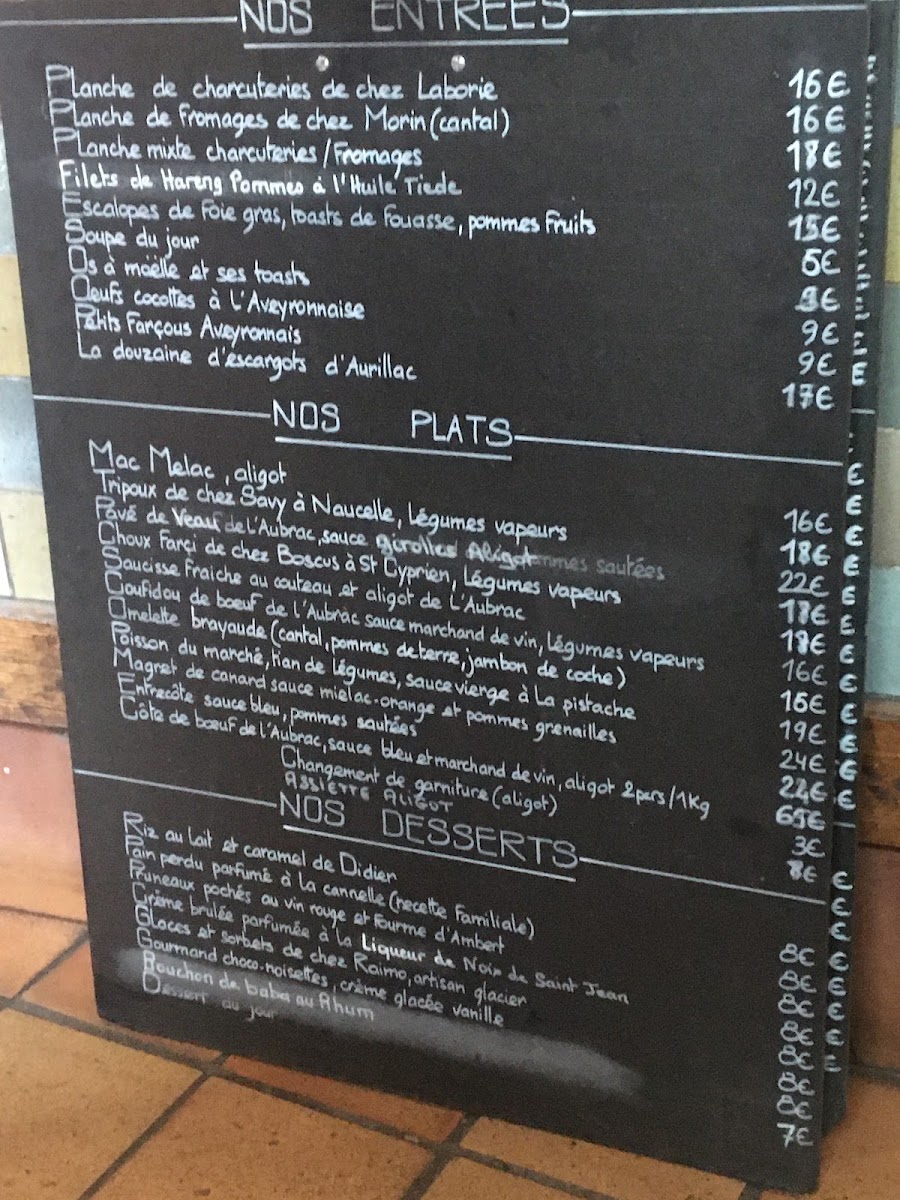 NOS ENTREES
Planche de charcuteries de chez Laborie 16€
Planche de Fromages de chez Morin (cantal) 16€
Planche mixte charcuteries / Fromages 18€
Filets de Hareng Pommes à l'Huile Tiede 12€
Escalopes de Foie gras, toasts de Fouasse, pommes Fruits 15€
Soupe du jour 6€
Os à moëlle et ses toasts 9€
Oeufs cocottes à L'Aveyronnaise 9€
Petits Farçous Aveyronnais 9€
La douzaine d'éscargots d'Aurillac 17€
NOS PLATS
Mac Melac, aligot 16€
Tripoux de chez Savy à Naucelle, Légumes vapeurs 18€
Pavé de Veau de L'Aubrac, sauce Girolles Aligot sautées 22€
Choux Farçi de chez Boscus à St Cyprien, Légumes vapeurs 18€
Saucisse Fraiche au couteau et aligot de L'Aubrac 18€
Coufidou de bœuf de L'Aubrac sauce marchand de vin, Légumes vapeurs 16€
Omelette brayaude (cantal, pommes de terre, jambon de coche) 16€
Poisson du marché, tian de Légumes, sauce vierge à La pistache 19€
Magret de canard sauce mielac-orange et pommes grenailles 24€
Entrecôte sauce bleu, pommes sautées 24€
Côte de bœuf de l'Aubrac, sauce bleu et marchand de vin, aligot 2pers/1Kg 65€
Changement de garniture (aligot) 3€
ASSIETTE ALIGOT 8€
NOS DESSERTS
Riz au lait et caramel de Didier 8€
Pain perdu parfumé à la cannelle (recette Familiale) 8€
Pruneaux pochés au vin rouge et Fourme d'Ambert 8€
Crème brulée parfumée à la Liqueur de Noix de Saint Jean 8€
Glaces et sorbets de chez Raimo, artisan glacier 8€
Gourmand choco-noisettes, crème glacée vanille 8€
Bouchon de baba au Rhum 8€
Dessert du jour 7€